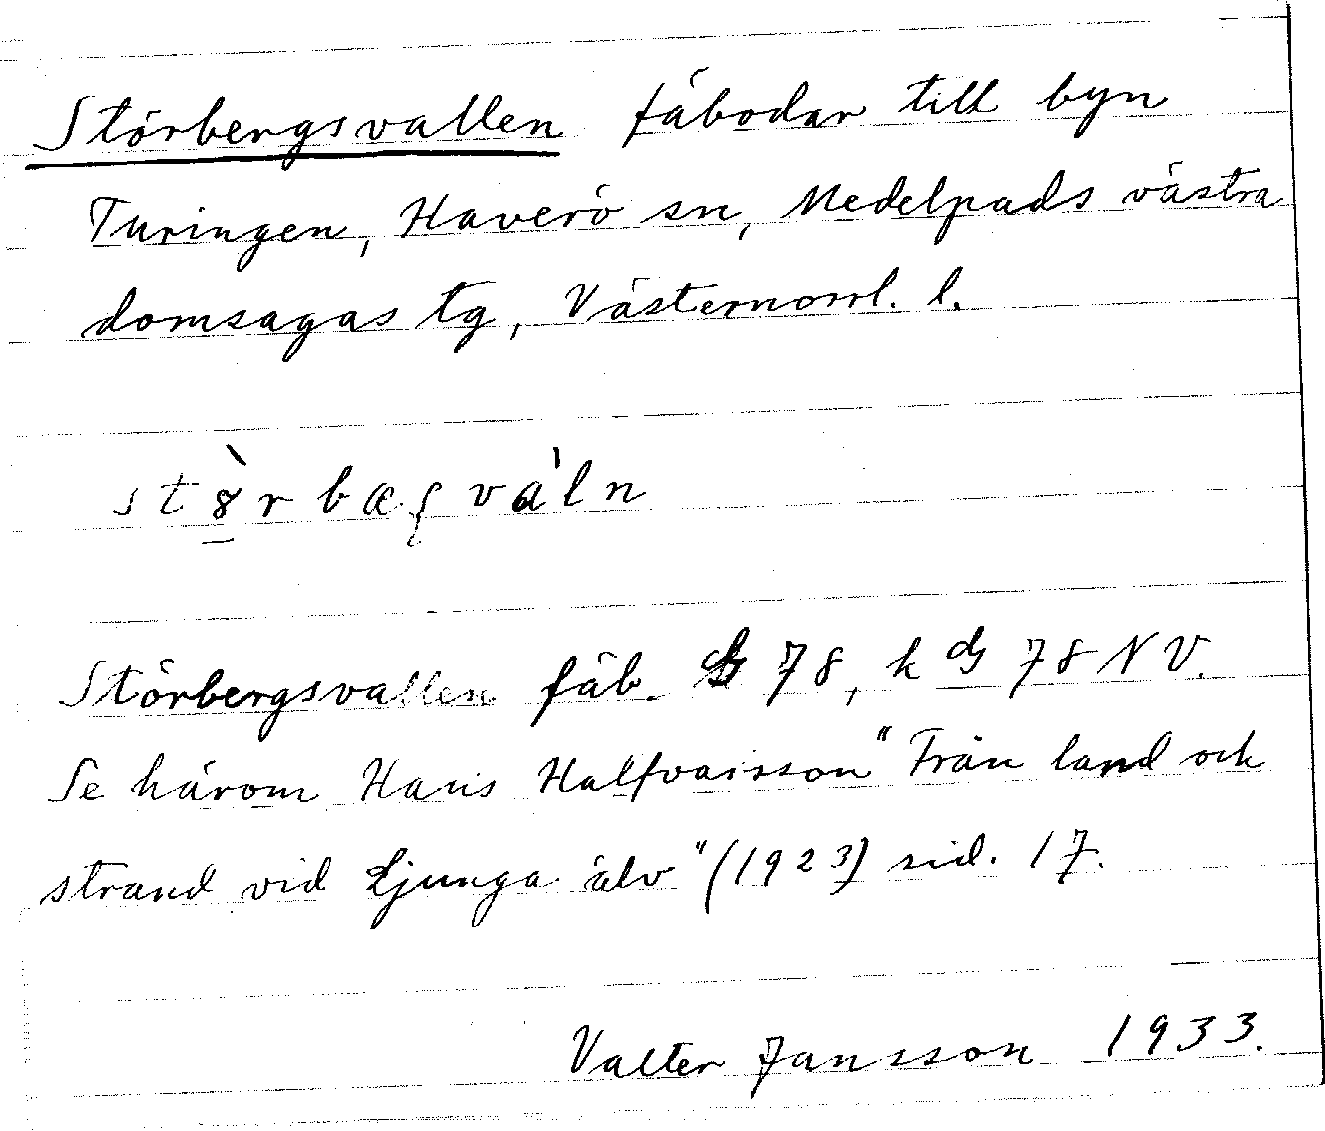 Störbergsvallen fäbodar till byn
Turingen, Haverö sn, Medelpads västra
domsagas tg, Västernorrl. l.
st8̠̀rbæʂvàln
Störbergsvallen fäb. 78, k 78 NV.
Se härom Hans Halfvarsson "Från land och
strand vid Ljunga älv" (1923) sid. 17.
Valter Jansson 1933.